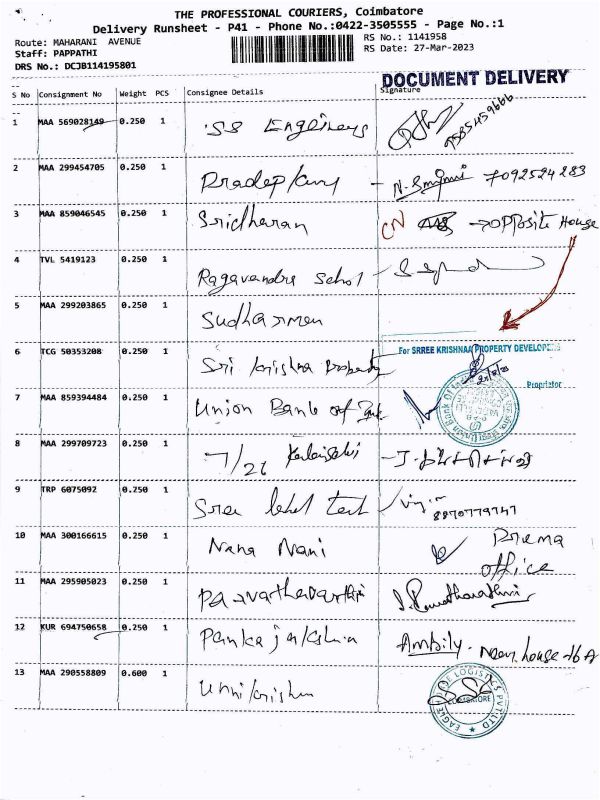 THE PROFESSIONAL COURIERS, Coimbatore
Delivery Runsheet - P41 - Phone No.:0422-3505555 - Page No.:1
Route: MAHARANI AVENUE
Staff: PAPPATHI
DRS No.: DCJB114195801
RS No.: 1141958
RS Date: 27-Mar-2023
DOCUMENT DELIVERY
S No Consignment No Weight PCS Consignee Details Signature
1 MAA 569028149 0.250 1 SS Engineers 9585459666
2 MAA 299454705 0.250 1 Pradeep - 7092524283
3 MAA 859046545 0.250 1 Sridharan CN → opposite House
4 TVL 5419123 0.250 1 Ragavandra School
5 MAA 299203865 0.250 1 Sudharsmen
For SRREE KRISHNAA PROPERTY DEVELOPERS
6 TCG 50353208 0.250 1 Sri krishna Property
Proprietor
7 MAA 859394484 0.250 1 Union Bank of
8 MAA 299709723 0.250 1 7/26 Kalaiselvi
9 TRP 6075092 0.250 1 Sree 8870779747
10 MAA 300166615 0.250 1 Nana Nani Prema
office
11 MAA 295905023 0.250 1 Paarvathavarthi
12 KUR 694750658 0.250 1 Pankajakshan Ambily - Near house
13 MAA 290558809 0.600 1 Unnikrishnan
LOGISTICS PVT.LTD
COIMBATORE